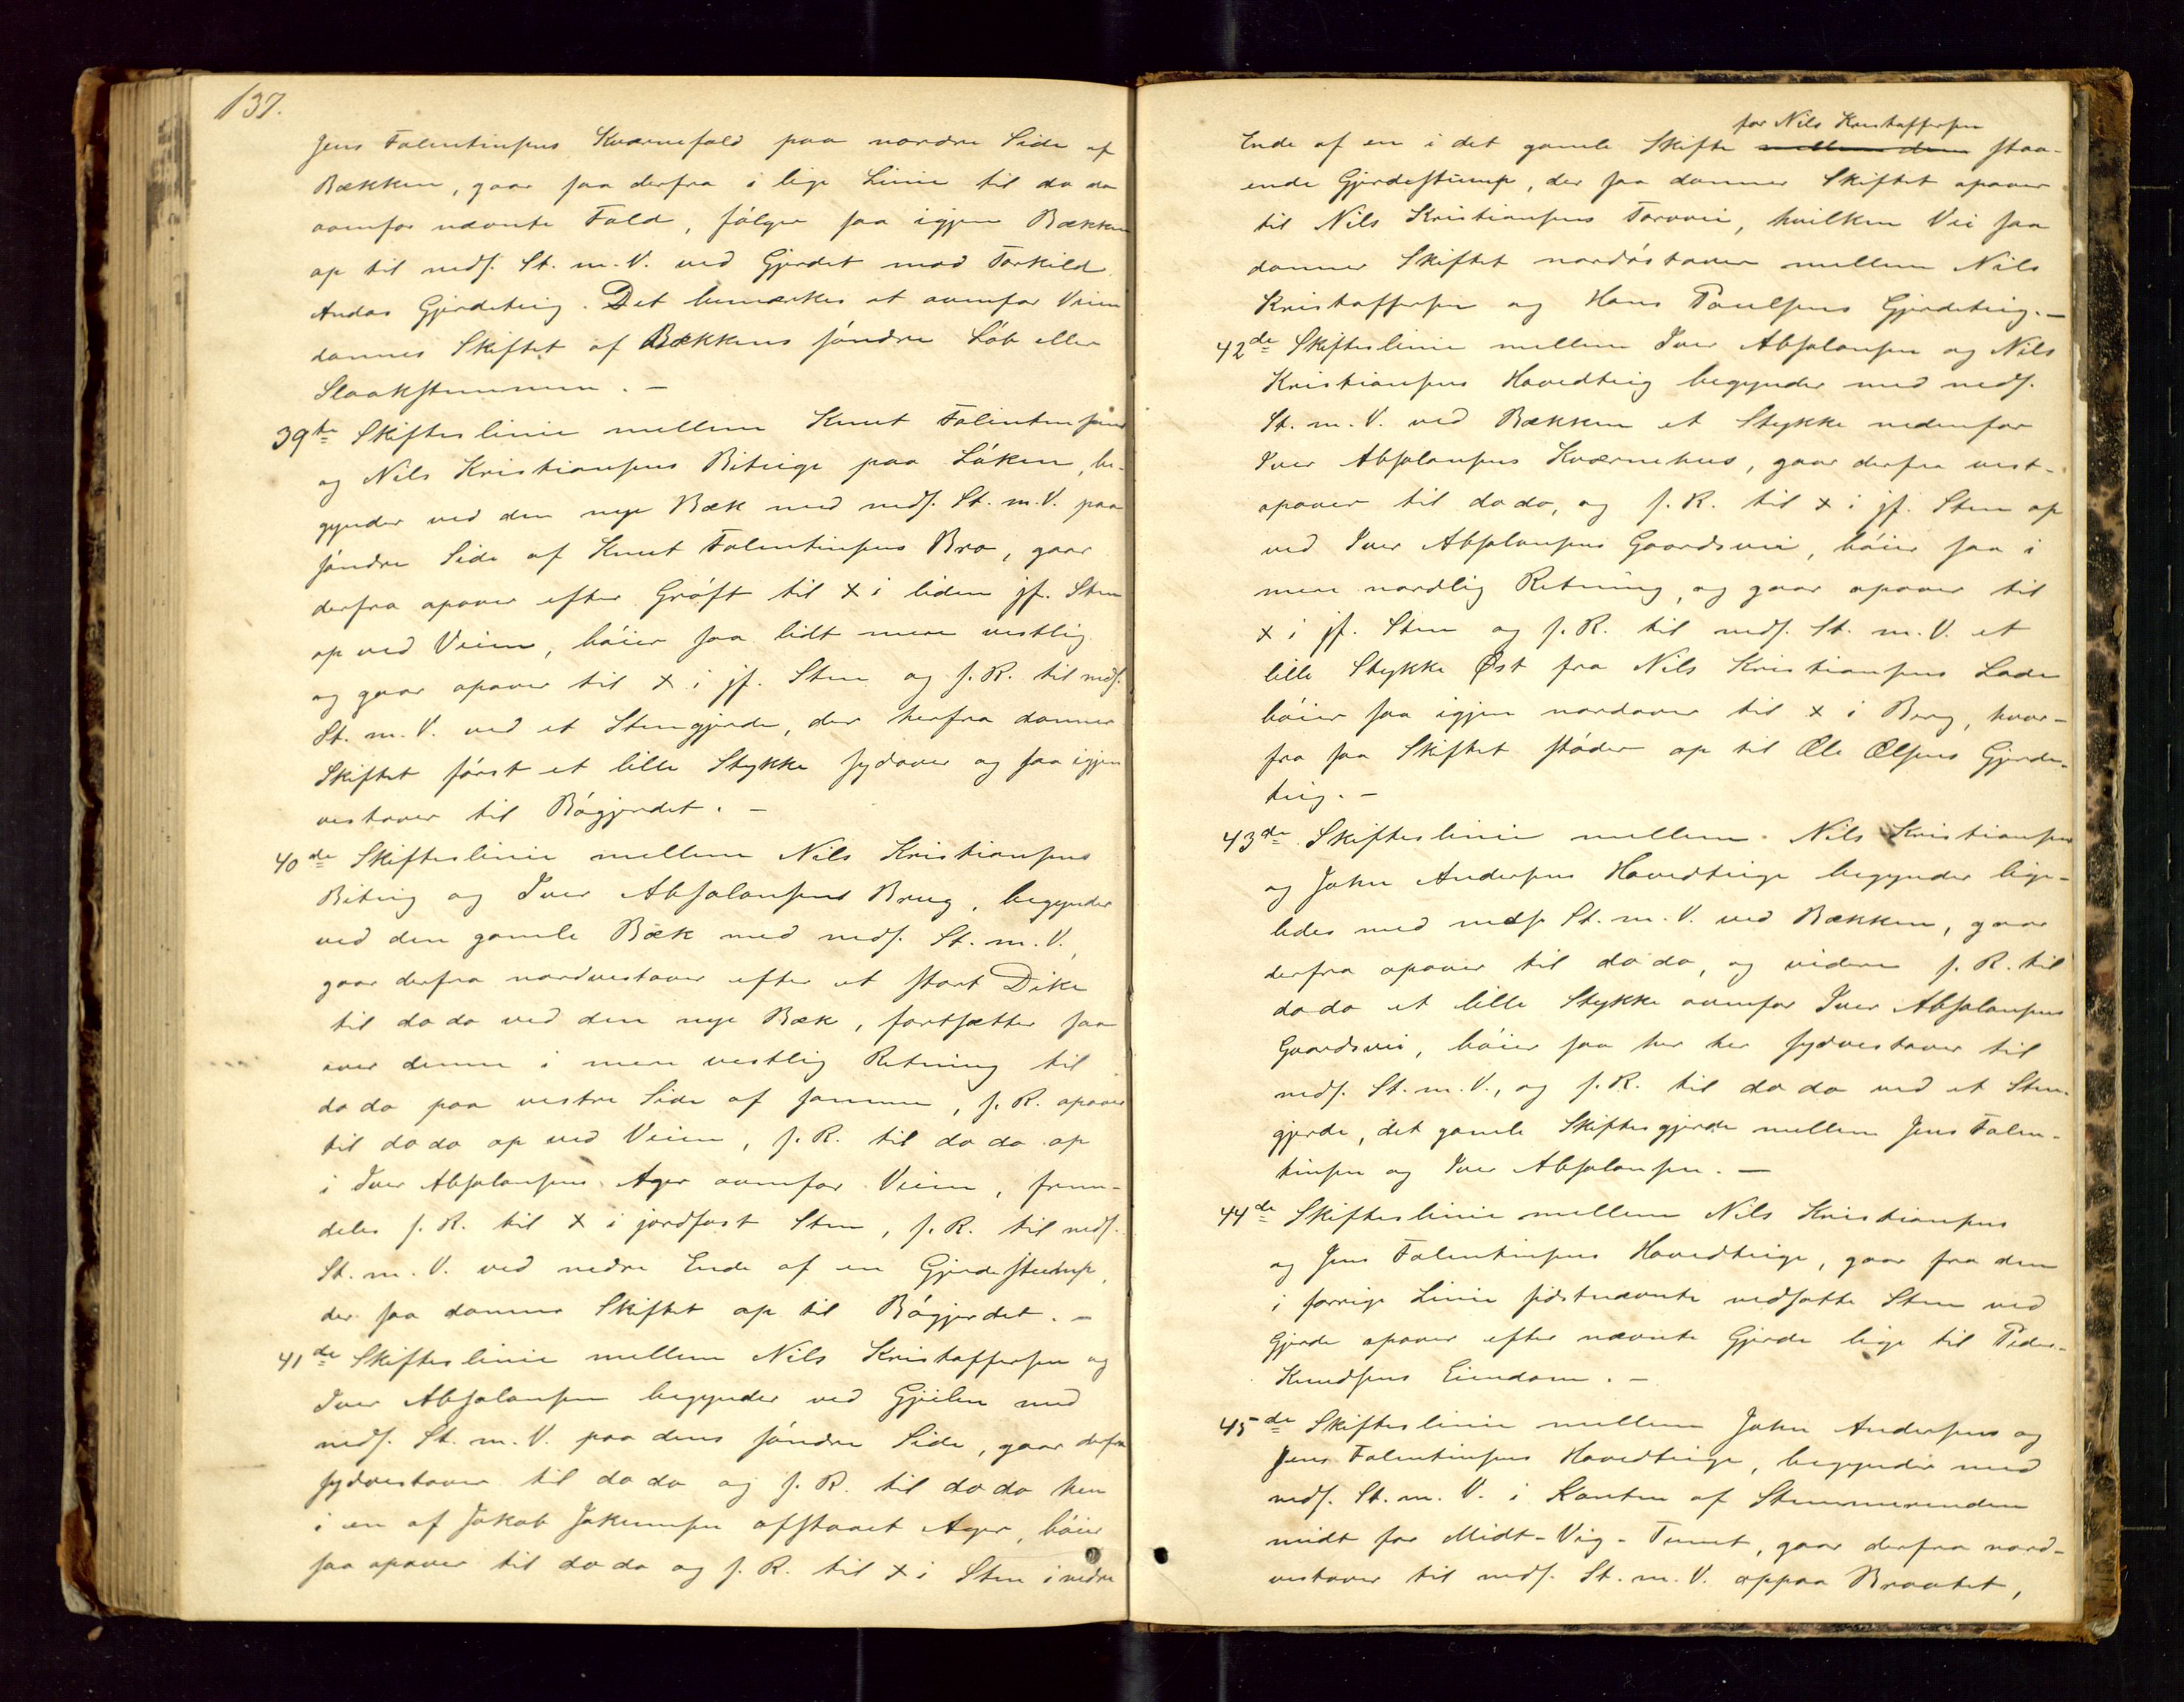 137.
Jens Falentinsens Kværnefald paa nordre Side af
Bækken, gaar saa derfra i lige Linie til do do
ovenfor nævnte Fald, følger saa igjen Bækken
op til neds. St. m. V. ved Gjerdet mod Torkild
Andas Gjerdeteig. Det bemærkes at ovenfor Veien
dannes Skiftet af Bækkens søndre Løb eller
Slaakstemmen. —
39te Skifteslinie mellem Knut Falentinsens
og Nils Kristiansens Biteige paa Løken, be-
gynder ved den nye Bæk med neds. St. m. V. paa
søndre Side af Knut Falentinsens Bro, gaar
derfra opover efter Grøft til x i liden jf. Sten
op ved Veien, bøier saa lidt mere vestlig
og gaar opover til x i jf. Sten og s. R. til neds.
St. m. V. ved et Stengjerde, der herfra danner
Skiftet først et lille Stykke sydover og saa igjen
vestover til Bøgjerdet. —
40de Skifteslinie mellem Nils Kristiansens
Biteig og Iver Absalonsens Brug, begynder
ved den gamle Bæk med neds. St. m. V.,
gaar derfra nordvestover efter et stort Dike
til do do ved den nye Bæk, fortsætter saa
over denne i mere vestlig Retning til
do do paa vestre Side af samme, s. R. opover
til do do op ved Veien, s. R. til do do op
i Iver Absalonsens Ager ovenfor Veien, frem-
deles s. R. til x i jordfast Sten, s. R. til neds.
St. m. V. ved nedre Ende af en Gjerdestump,
der saa danner Skiftet op til Bøgjerdet. —
41de Skifteslinie mellem Nils Kristoffersen og
Iver Absalonsen begynder ved Gjeilen med
neds. St. m. V. paa dens søndre Side, gaar derfra
sydvestover til do do og s. R. til do do hen
i en af Jakob Jokumsen afstaaet Ager, bøier
saa opover til do do og s. R. til x i Sten i nedre
for Nils Kristoffersen
Ende af en i det gamle Skifte mellem dem staa-
ende Gjerdestump, der saa danner Skiftet opover
til Nils Kristiansens Torvvei, hvilken Vei saa
danner Skiftet nordøstover mellem Nils
Kristoffersen og Hans Poulsens Gjerdeteig. —
42de Skifteslinie mellem Iver Absalonsen og Nils
Kristiansens Hovedteig begynder med neds.
St. m. V. ved Bækken et Stykke nedenfor
Iver Absalonsens Kværnehus, gaar derfra vest-
opover til do do, og s. R. til x i jf. Sten op
ved Iver Absalonsens Gaardsvei, bøier saa i
mere nordlig Retning, og gaar opover til
x i jf. Sten og s. R. til neds. St. m. V. et
lille Stykke Øst fra Nils Kristiansens Lade
bøier saa igjen nordover til x i Berg, hvor-
fra saa Skiftet støder op til Ole Olsens Gjerde-
teig. —
43de Skifteslinie mellem Nils Kristiansens
og John Andersens Hovedteige begynder lige-
ledes med neds. St. m. V. ved Bækken, gaar
derfra opover til do do, og videre s. R. til
do do et lille Stykke ovenfor Iver Absalonsens
Gaardsvei, bøier saa her her sydvestover til
neds. St. m. V., og s. R. til do do ved et Sten-
gjerde, det gamle Skiftesgjerde mellem Jens Falen-
tinsen og Iver Absalonsen. —
44de Skifteslinie mellem Nils Kristiansens
og Jens Falentinsens Hovedteige, gaar fra den
i forrige Linie sidstnævnte nedsatte Sten ved
Gjerde opover efter nævnte Gjerde lige til Peder
Knudsens Eiendom. —
45de Skifteslinie mellem John Andersens og
Jens Falentinsens Hovedteige, begynder med
neds. St. m. V. i Kanten af Stemmerenden
midt for Midt-Vig-Tunet, gaar derfra nord-
vestover til neds. St. m. V. oppaa Braatet,